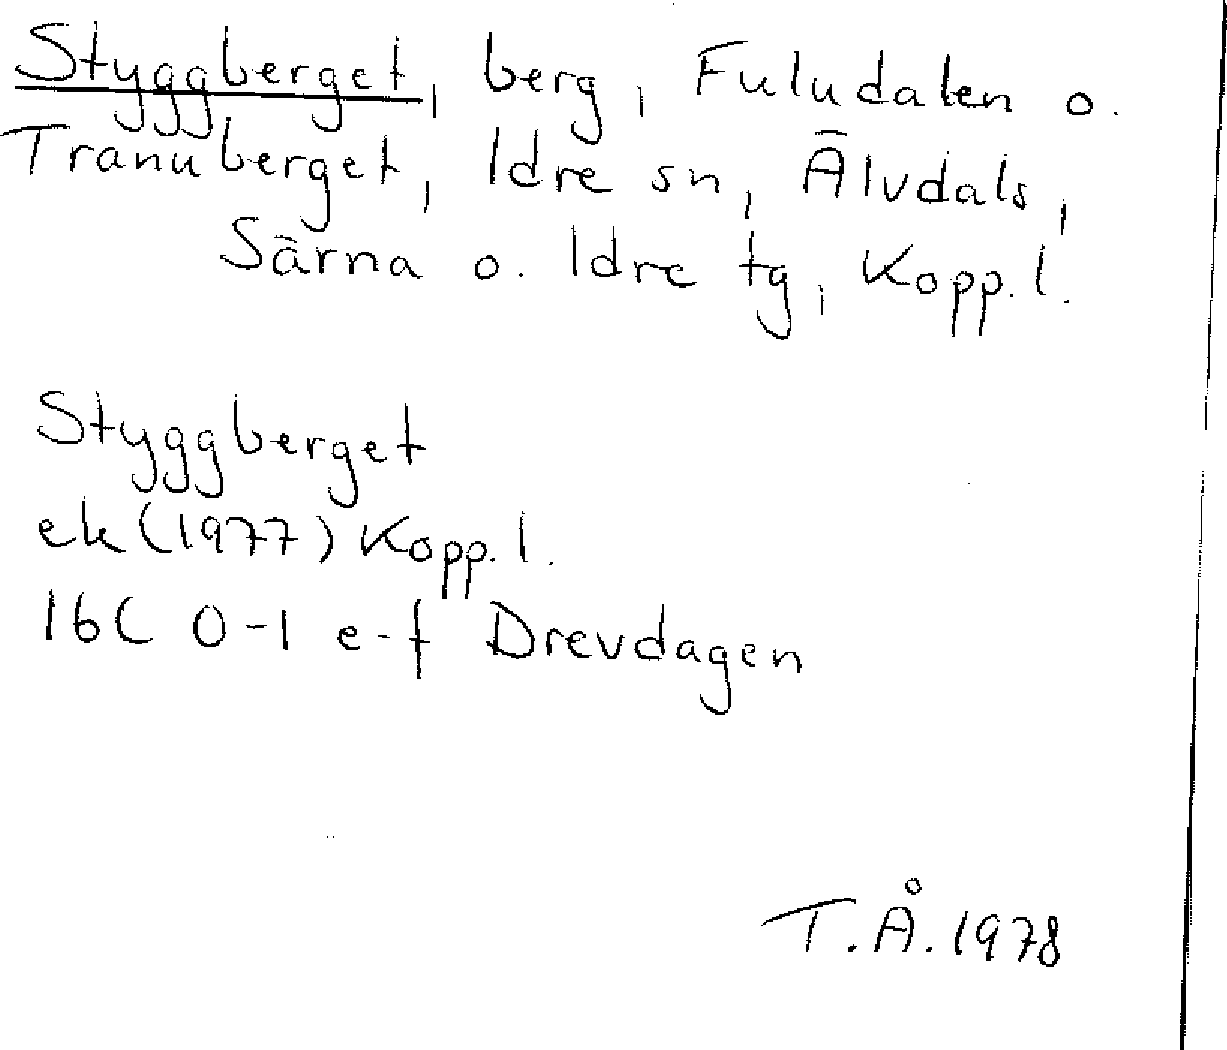 Styggberget, berg, Fuludalen o.
Tranuberget, Idre sn, Älvdals,
Särna o. Idre tg, Kopp. l.
Styggberget
ek (1977) Kopp. l.
16C 0-1 e-f Drevdagen
T.Å. 1978